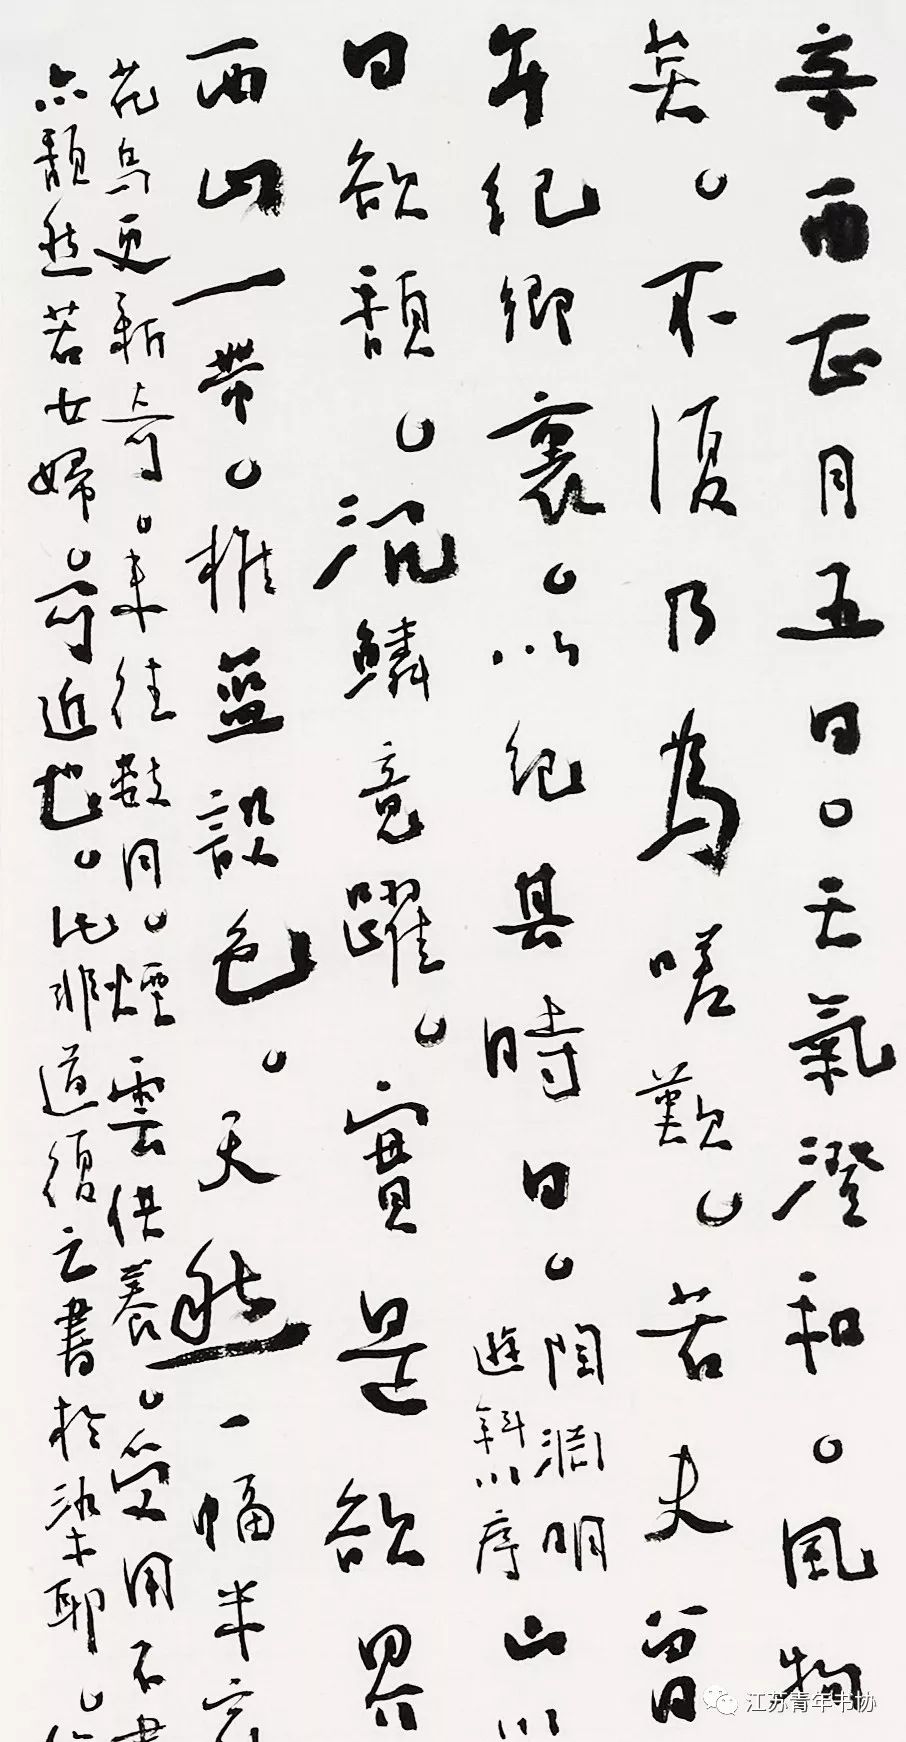 辛酉正月五日。天氣澄和。風物
矣。不復乃為嗟歎。若夫曾
年紀鄉裏。以紀其時日。陶淵明
遊斜川序
山川
日欲頹。沉鱗竟躍。實是欲界
西山一帶。堆藍設色。天然一幅米家
花鳥更新奇。來往數月。煙雲供養。受用不盡
亦頹然若女婦。可近也。此非道復之書於染耶。
江苏青年书协